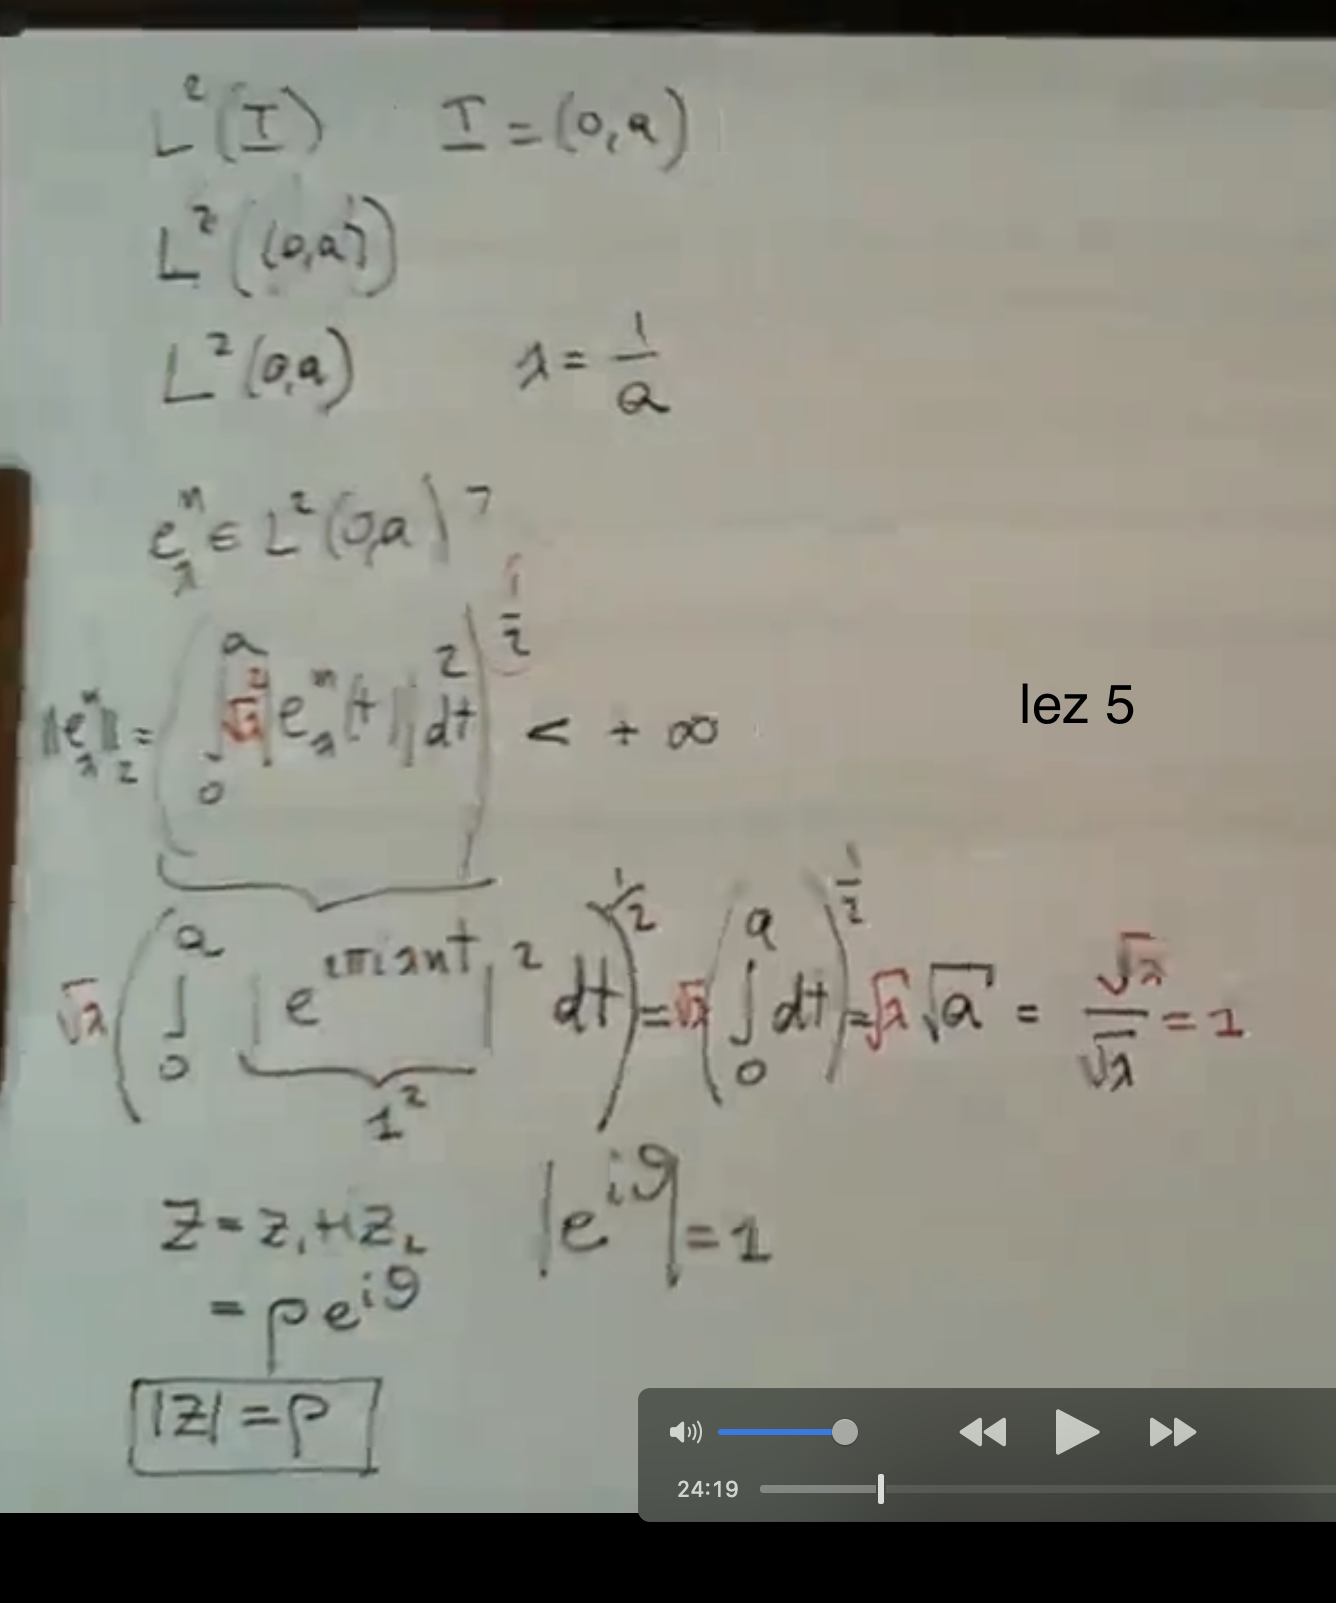 L²(I) I = (0,a)
L²((0,a))
L²(0,a) λ = 1/a
e_λ^n ∈ L²(0,a) ?
‖e_λ^n‖₂ = (∫₀^a √λ² |e_λ^n(t)|² dt)^{1/2} < +∞
lez 5
√λ (∫₀^a |e^{2πiλnt}|² dt)^{1/2} = √λ (∫₀^a dt)^{1/2} = √λ √a = √λ/√λ = 1
1²
z = z₁ + i z₂ |e^{iϑ}| = 1
= ρ e^{iϑ}
|z| = ρ
24:19